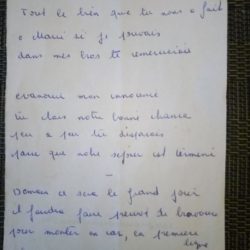 Tout le bien que tu nous a fait
o Marie si je pouvais
dans mes bras te remercierais
evanouir mon innocence
tu étais notre bonne chance
peu a peu tu disparais
parce que notre sejour est terminé
—
Demain ce sera le grand jour
il faudra faire preuve de bravoure
pour monter en car, la premiere
ligne